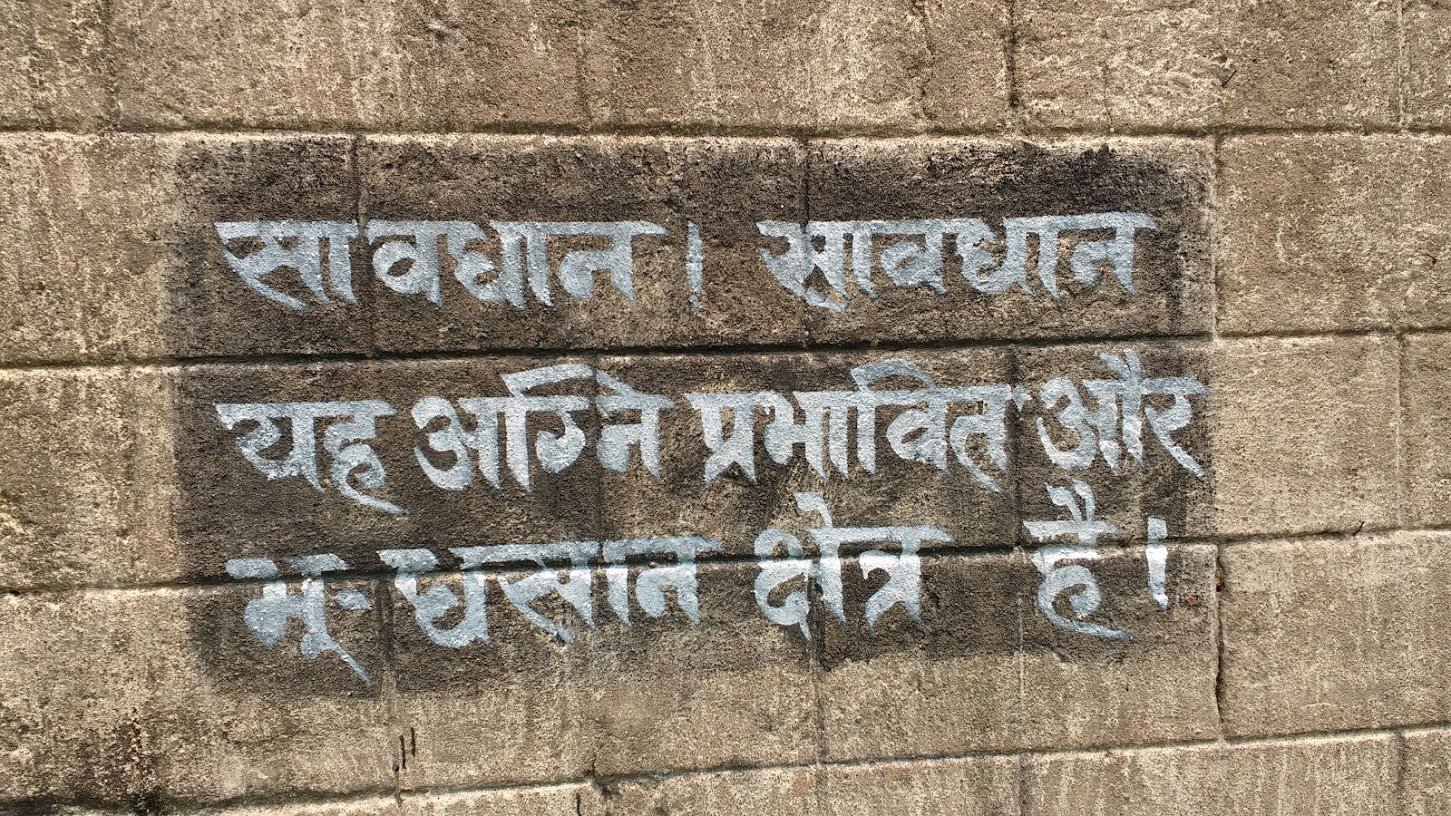 सावधान । सावधान
यह अग्नि प्रभावित और
भू-धसान क्षेत्र है ।